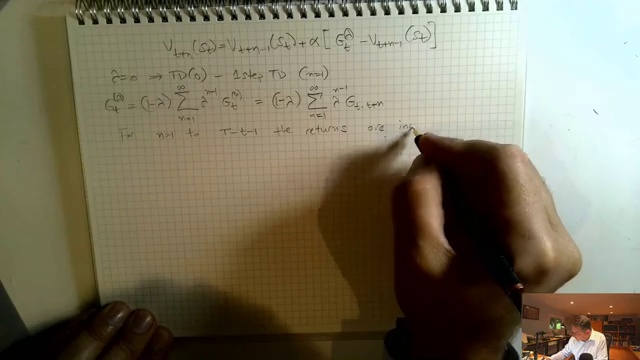 V_{t+n}(S_t) = V_{t+n-1}(S_t) + α [ G_t^{(λ)} - V_{t+n-1}(S_t) ]
λ=0 ⇒ TD(0) - 1 step TD (n=1)
G_t^{(λ)} = (1-λ) ∑_{n=1}^{∞} λ^{n-1} G_t^{(n)} = (1-λ) ∑_{n=1}^{∞} λ^{n-1} G_{t:t+n}
For n=1 to T-t-1 the returns are